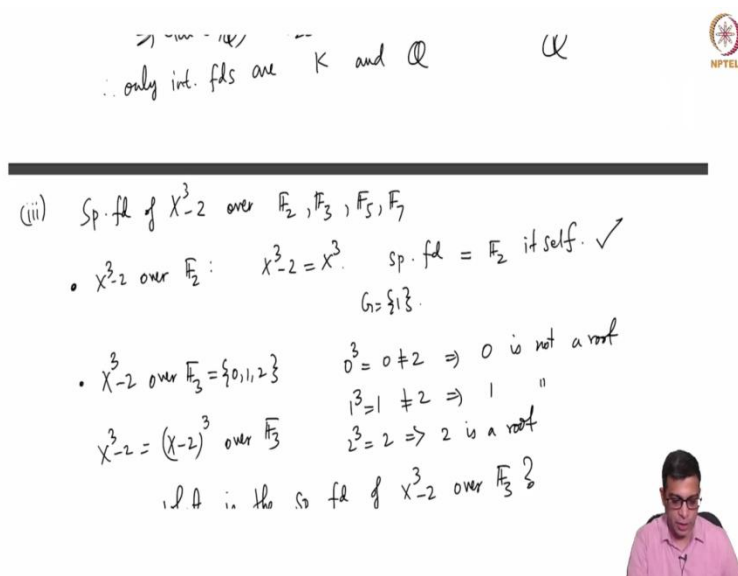 Q
NPTEL
∴ only int. fds are K and Q
(iii) Sp. fd of X³-2 over F₂, F₃, F₅, F₇
• X³-2 over F₂: X³-2 = X³. sp. fd = F₂ itself. ✓
G = {1}.
• X³-2 over F₃ = {0,1,2} 0³ = 0 ≠ 2 ⇒ 0 is not a root
1³ = 1 ≠ 2 ⇒ 1 "
X³-2 = (X-2)³ over F₃ 2³ = 2 ⇒ 2 is a root
is the sp fd of X³-2 over F₃?